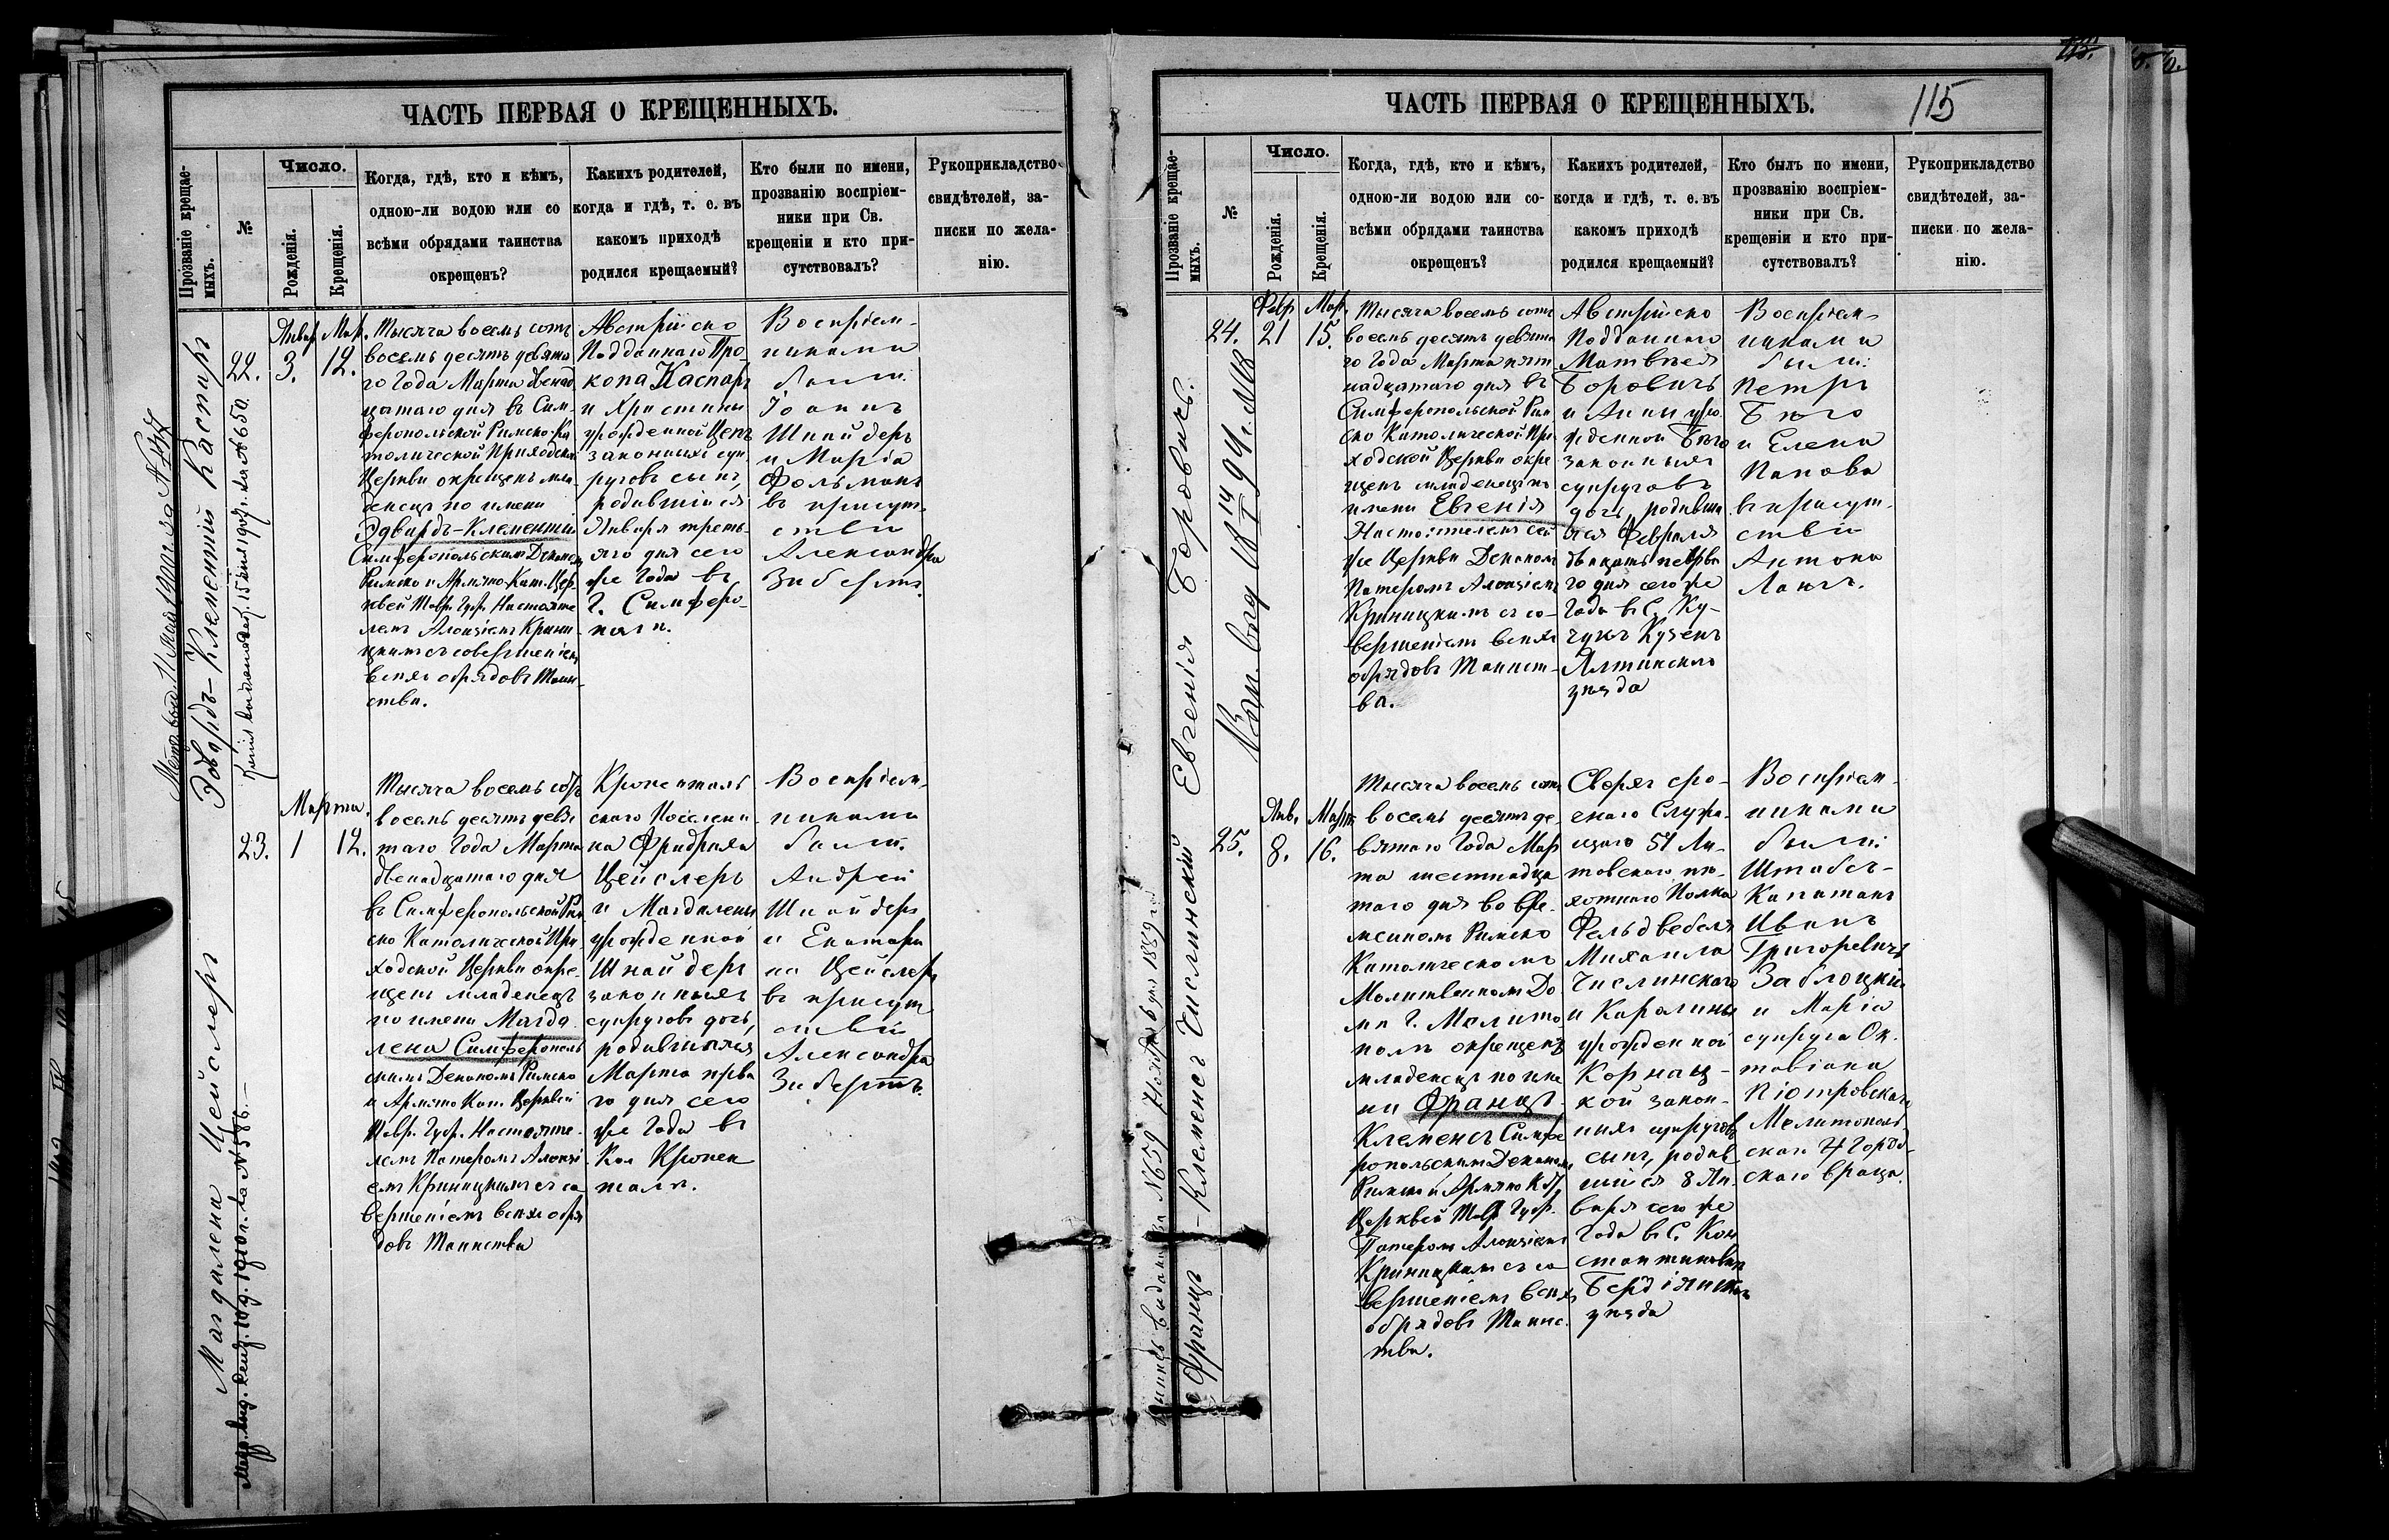 ЧАСТЬ ПЕРВАЯ О КРЕЩЕННЫХЪ.
Прозваніе крещае-
мыхъ.
№
Число.
Рожденія.
Крещенія.
Когда, гдѣ, кто и кѣмъ,
одною-ли водою или со
всѣми обрядами таинства
окрещенъ?
Какихъ родителей,
когда и гдѣ, т. е. въ
какомъ приходѣ
родился крещаемый?
Кто были по имени,
прозванію воспріем-
ники при Св.
крещеніи и кто при-
сутствовалъ?
Рукоприкладство
свидѣтелей, за-
писки по жела-
нію.
Эдвардъ-Клементій Каспаръ
22.
Январ
3.
Мар.
12.
Тысяча восемь сотъ
восемь десятъ девята
го Года Марта двенад
цатаго дня въ Сим-
феропольской Римско-Ка
толической Приходской
Церкви окрещенъ мла
денецъ по имени
Эдвардъ-Клементій
Симферопольскимъ Деканомъ
Римско и Армяно-Кат. Цер
квей Тавр. Губ. Настояте
лемъ Алоизіемъ Крини
цкимъ съ совершеніемъ
всѣхъ обрядовъ Таин-
ства.
Австрійско
Подданнаго Про
копа Каспаръ
и Христины
урожденной Цепъ
законныхъ суп
руговъ сынъ,
родившійся
Января треть
яго дня сего
же Года въ
Г. Симферо-
полѣ.
Воспріем-
никами
были:
Іоаннъ
Шнайдеръ
и Марія
Фольманъ
въ присут
ствіи
Александра
Зибертъ.
Магдалена Цейслеръ
23.
Марта.
1
12.
Тысяча восемь сотъ
восемь десятъ девя
таго Года Марта
двенадцатаго дня
въ Симферопольской Рим
ско Католической При
ходской Церкви окре
щенъ младенецъ
по имени Магда
лена Симферополь
скимъ Деканомъ Римско
и Армяно Кат. Церквей
Тавр. Губ. Настояте
лемъ Патеромъ Алоизі
емъ Криницкимъ съ со
вершеніемъ всѣхъ обря
довъ Таинства
Кроненталь
скаго Поселени
на Фридриха
Цейслеръ
и Магдалены
урожденной
Шнайдеръ
законныхъ
супруговъ дочь,
родившаяся
Марта перва
го дня сего
же Года въ
Кол Кронен
талѣ.
Воспріем-
никами
были:
Андрей
Шнайдеръ
и Екатери
на Цейслеръ
въ присут
ствіи
Александра
Зибертъ.
ЧАСТЬ ПЕРВАЯ О КРЕЩЕННЫХЪ.
115
Прозваніе крещае-
мыхъ.
№
Число.
Рожденія.
Крещенія.
Когда, гдѣ, кто и кѣмъ,
одною-ли водою или со-
всѣми обрядами таинства
окрещенъ?
Какихъ родителей,
когда и гдѣ, т. е. въ
какомъ приходѣ
родился крещаемый?
Кто былъ по имени,
прозванію воспріем-
ники при Св.
крещеніи и кто при-
сутствовалъ?
Рукоприкладство
свидѣтелей, за-
писки по жела-
нію.
Евгенія Боровичъ.
24.
Февр
21
Мар.
15.
Тысяча восемь сотъ
восемь десятъ девята
го Года Марта пят
надцатаго дня въ
Симферопольской Рим
ско Католической При
ходской Церкви окре
щенъ младенецъ по
имени Евгенія
Настоятелемъ сей
же Церкви Деканомъ
Патеромъ Алоизіемъ
Криницкимъ съ со-
вершеніемъ всѣхъ
обрядовъ Таинст-
ва.
Австрійско
Подданнаго
Матвѣея
Боровичъ
и Анны уро
жденной Бѣго
законныхъ
супруговъ
дочь, родивша
яся Февраля
двадцать перва
го дня сего же
Года въ С. Ку-
чукъ Кузенъ
Ялтинскаго
уѣзда
Воспріем-
никами
были:
Петръ
Бѣго
и Елена
Папова
въ присут
ствіи
Антона
Лангъ.
Францъ-Клеменсъ Числинскій
25.
Янв.
8.
Март
16.
Тысяча восемь сотъ
восемь десятъ де-
вятаго Года Мар
та шестнадца
таго дня во вре-
менномъ Римско
Католическомъ
Молитвенномъ До
мѣ Г. Мелито
полѣ окрещенъ
младенецъ по име
ни Францъ-
Клеменсъ Симфе
ропольскимъ Деканомъ
Римско и Армяно К.
Церквей Тав. Губ.
Патеромъ Алоизіемъ
Криницкимъ съ со
вершеніемъ всѣхъ
обрядовъ Таинс
тва.
Сверхъ сро-
чнаго Служа-
щаго 51 Ли-
товскаго пѣ-
хотнаго Полка
Фельдвебеля
Михаила
Числинскаго
и Каролины
урожденной
Корнац-
кой закон-
ныхъ супруговъ
сынъ, родив
шійся 8 Ян.
варя сего же
Года въ С. Кон
стантиновкѣ
Бердянскаго
уѣзда
Воспріем-
никами
были:
Штабсъ-
Капитанъ
Иванъ
Григоревичъ
Заблоцкій
и Марія
супруга Ок-
тавіана
Піотровскаго
Мелитополь-
скаго Город-
скаго врача.